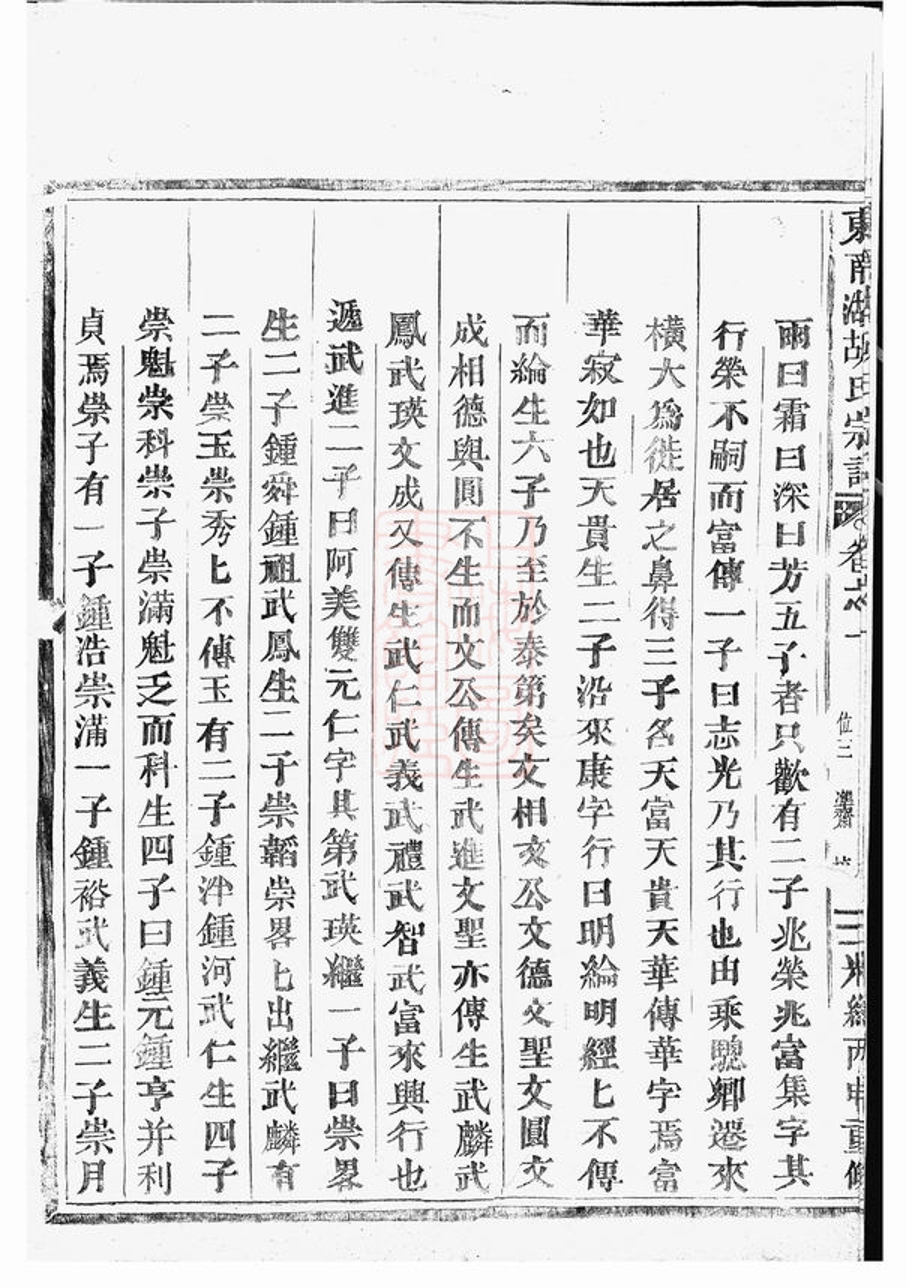 東南湖胡氏宗譜 卷之一
位三
光緒丙申重修
雨曰霜曰深曰芳五子者只歡有二子兆榮兆富集字其
行榮不嗣而富傳一子曰志光乃其行也由乘驄卿遷來
橫大爲徙居之鼻得三子名天富天貴天華傳華字焉富
華寂如也天貫生二子沿來康字行曰明綸明經匕不傳
而綸生六子乃至於泰第矣文相文公文德文聖文圓文
成相德與圓不生而文公傳生武進文聖亦傳生武麟武
鳳武瑛文成又傳生武仁武義武禮武智武富來興行也
遞武進二子曰阿美雙元仁字其第武瑛繼一子曰崇畧
生二子鍾舜鍾祖武鳳生二子崇韜崇畧匕出繼武麟有
二子崇玉崇秀匕不傳玉有二子鍾泮鍾河武仁生四子
崇魁崇科崇子崇滿魁乏而科生四子曰鍾元鍾亨并利
貞焉崇子有一子鍾浩崇滿一子鍾裕武義生二子崇月